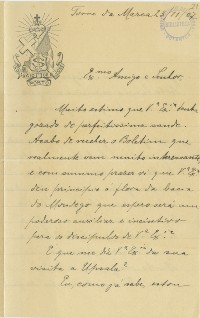 Torre da Marca 25/11/
Ex.mo Amigo e Senhor,
Muito estimo que V.ª Ex.ª tenha
gosado de perfeitissima saude.
Acabo de receber o Boletim que
realmente vem muito interessante
e com summo prazer vi que V.ª Ex.ª
deu principio a flora da bacia
do Mondego que espero será um
poderoso auxiliar e incentivo
para os discipulos de V.ª Ex.ª
E que me diz V.ª Ex.ª da sua
visita a Upsala?
Eu como já sabe estou